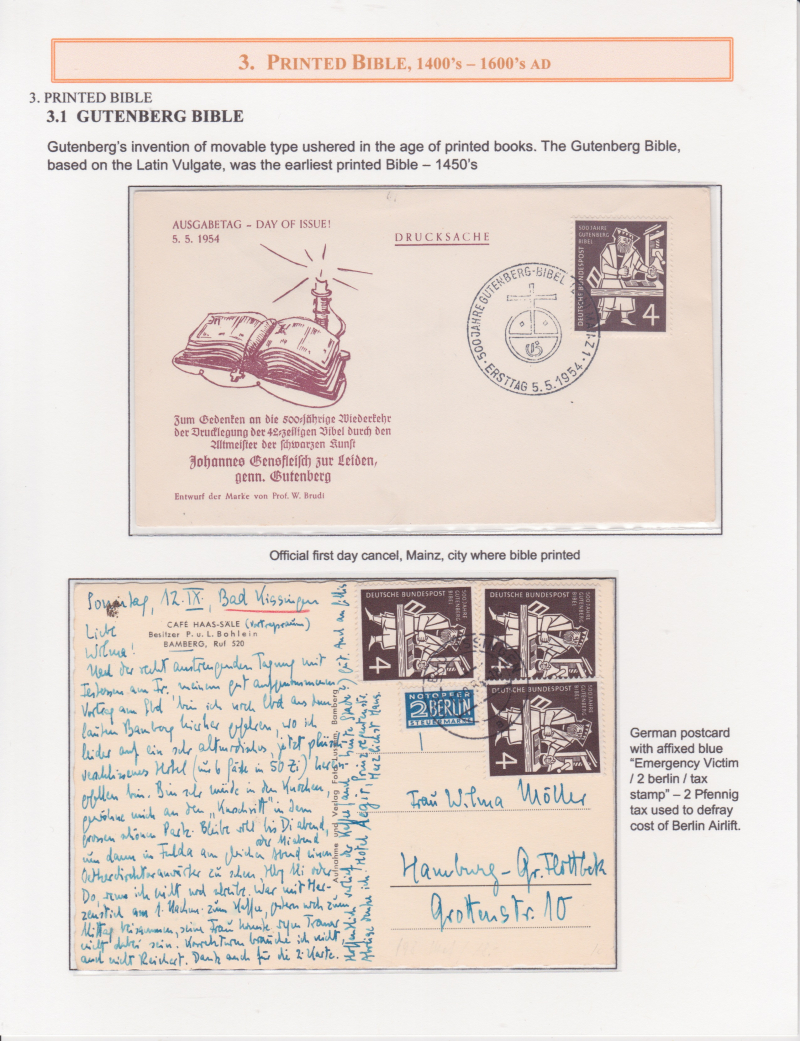 3. PRINTED BIBLE, 1400's – 1600's AD
3. PRINTED BIBLE
3.1 GUTENBERG BIBLE
Gutenberg's invention of movable type ushered in the age of printed books. The Gutenberg Bible,
based on the Latin Vulgate, was the earliest printed Bible – 1450's
AUSGABETAG – DAY OF ISSUE!
5. 5. 1954
DRUCKSACHE
500 JAHRE
GUTENBERG
BIBEL
DEUTSCHE BUNDESPOST
4
500 JAHRE GUTENBERG-BIBEL
ERSTTAG 5.5.1954
Zum Gedenken an die 500-jährige Wiederkehr
der Drucklegung der 42-zeiligen Bibel durch den
Altmeister der schwarzen Kunst
Johannes Gensfleisch zur Leiden,
genn. Gutenberg
Entwurf der Marke von Prof. W. Brudi
Official first day cancel, Mainz, city where bible printed
Sonntag, 12.IX. Bad Kissingen
CAFÉ HAAS-SÄLE (Vortragsraum)
Besitzer P. u. L. Bohlein
BAMBERG, Ruf 520
Liebe
Wilma!
Nach der recht anstrengenden Tagung mit
Festessen am Fr., meinem gut aufgenommenen
Vortrag am bin ich noch aus dem
lauten Bamberg hierher gefahren, wo ich
leider auf ein sehr altmodisches, jetzt
Hotel (nur 6 Gäste in 50 Zi)
bin. Bin sehr müde in den Knochen,
mich an den "Kurschritt" in dem
grossen schönen Park. Bleibe wohl bis Di abend,
oder Mi abend
um dann in Fulda am gleichen Abend einen
zu sehen,
Do, wenn ich will noch bleibe. War mit
am 1. Nachm. zum Kaffee, gestern noch zum
Mittag beisammen, seine Frau konnte wegen
nicht dabei sein. Korrekturen brauche ich nicht
auch nicht Reichert. Dank auch für die 2. Karte.
Hotel Aegir, Prinzregentenstr.
Herzlichst Hans.
Aufnahme und Verlag Foto Bamberg
DEUTSCHE BUNDESPOST
500 JAHRE
GUTENBERG
BIBEL
4
DEUTSCHE BUNDESPOST
500 JAHRE
GUTENBERG
BIBEL
4
DEUTSCHE BUNDESPOST
500 JAHRE
GUTENBERG
BIBEL
4
NOTOPFER
2 BERLIN
STEUERMARKE
Frau Wilma Möller
Hamburg-Gr. Flottbek
Grottenstr. 10
German postcard
with affixed blue
"Emergency Victim
/ 2 berlin / tax
stamp" – 2 Pfennig
tax used to defray
cost of Berlin Airlift.